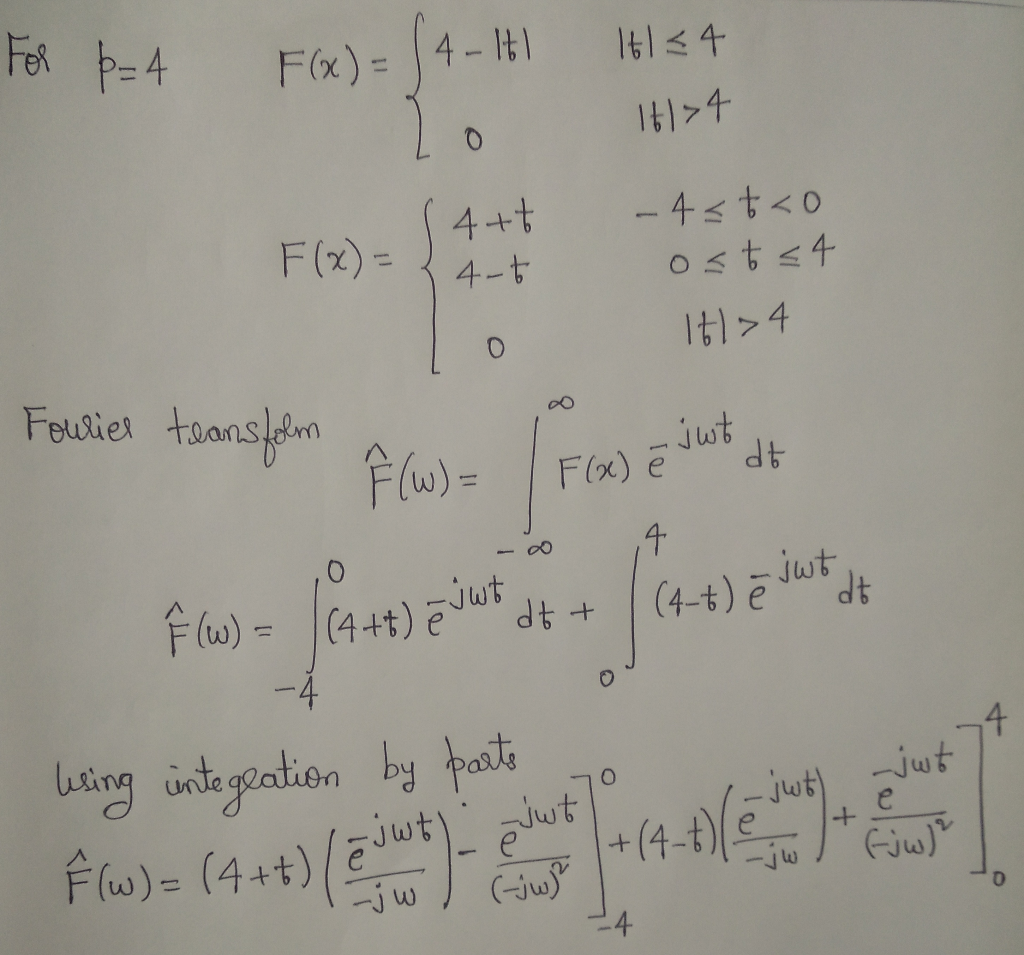 For p=4 F(x) = { 4-|t| |t| ≤ 4
0 |t|>4
F(x) = { 4+t -4 ≤ t < 0
4-t 0 ≤ t ≤ 4
0 |t| > 4
Fourier transform F̂(w) = ∫_{-∞}^{∞} F(x) e^{-jwt} dt
F̂(w) = ∫_{-4}^{0} (4+t) e^{-jwt} dt + ∫_{0}^{4} (4-t) e^{-jwt} dt
Using integration by parts
F̂(w) = (4+t) (e^{-jwt}/-jw) - e^{-jwt}/(-jw)² ]_{-4}^{0} + (4-t) (e^{-jwt}/-jw) + e^{-jwt}/(-jw)² ]_{0}^{4}